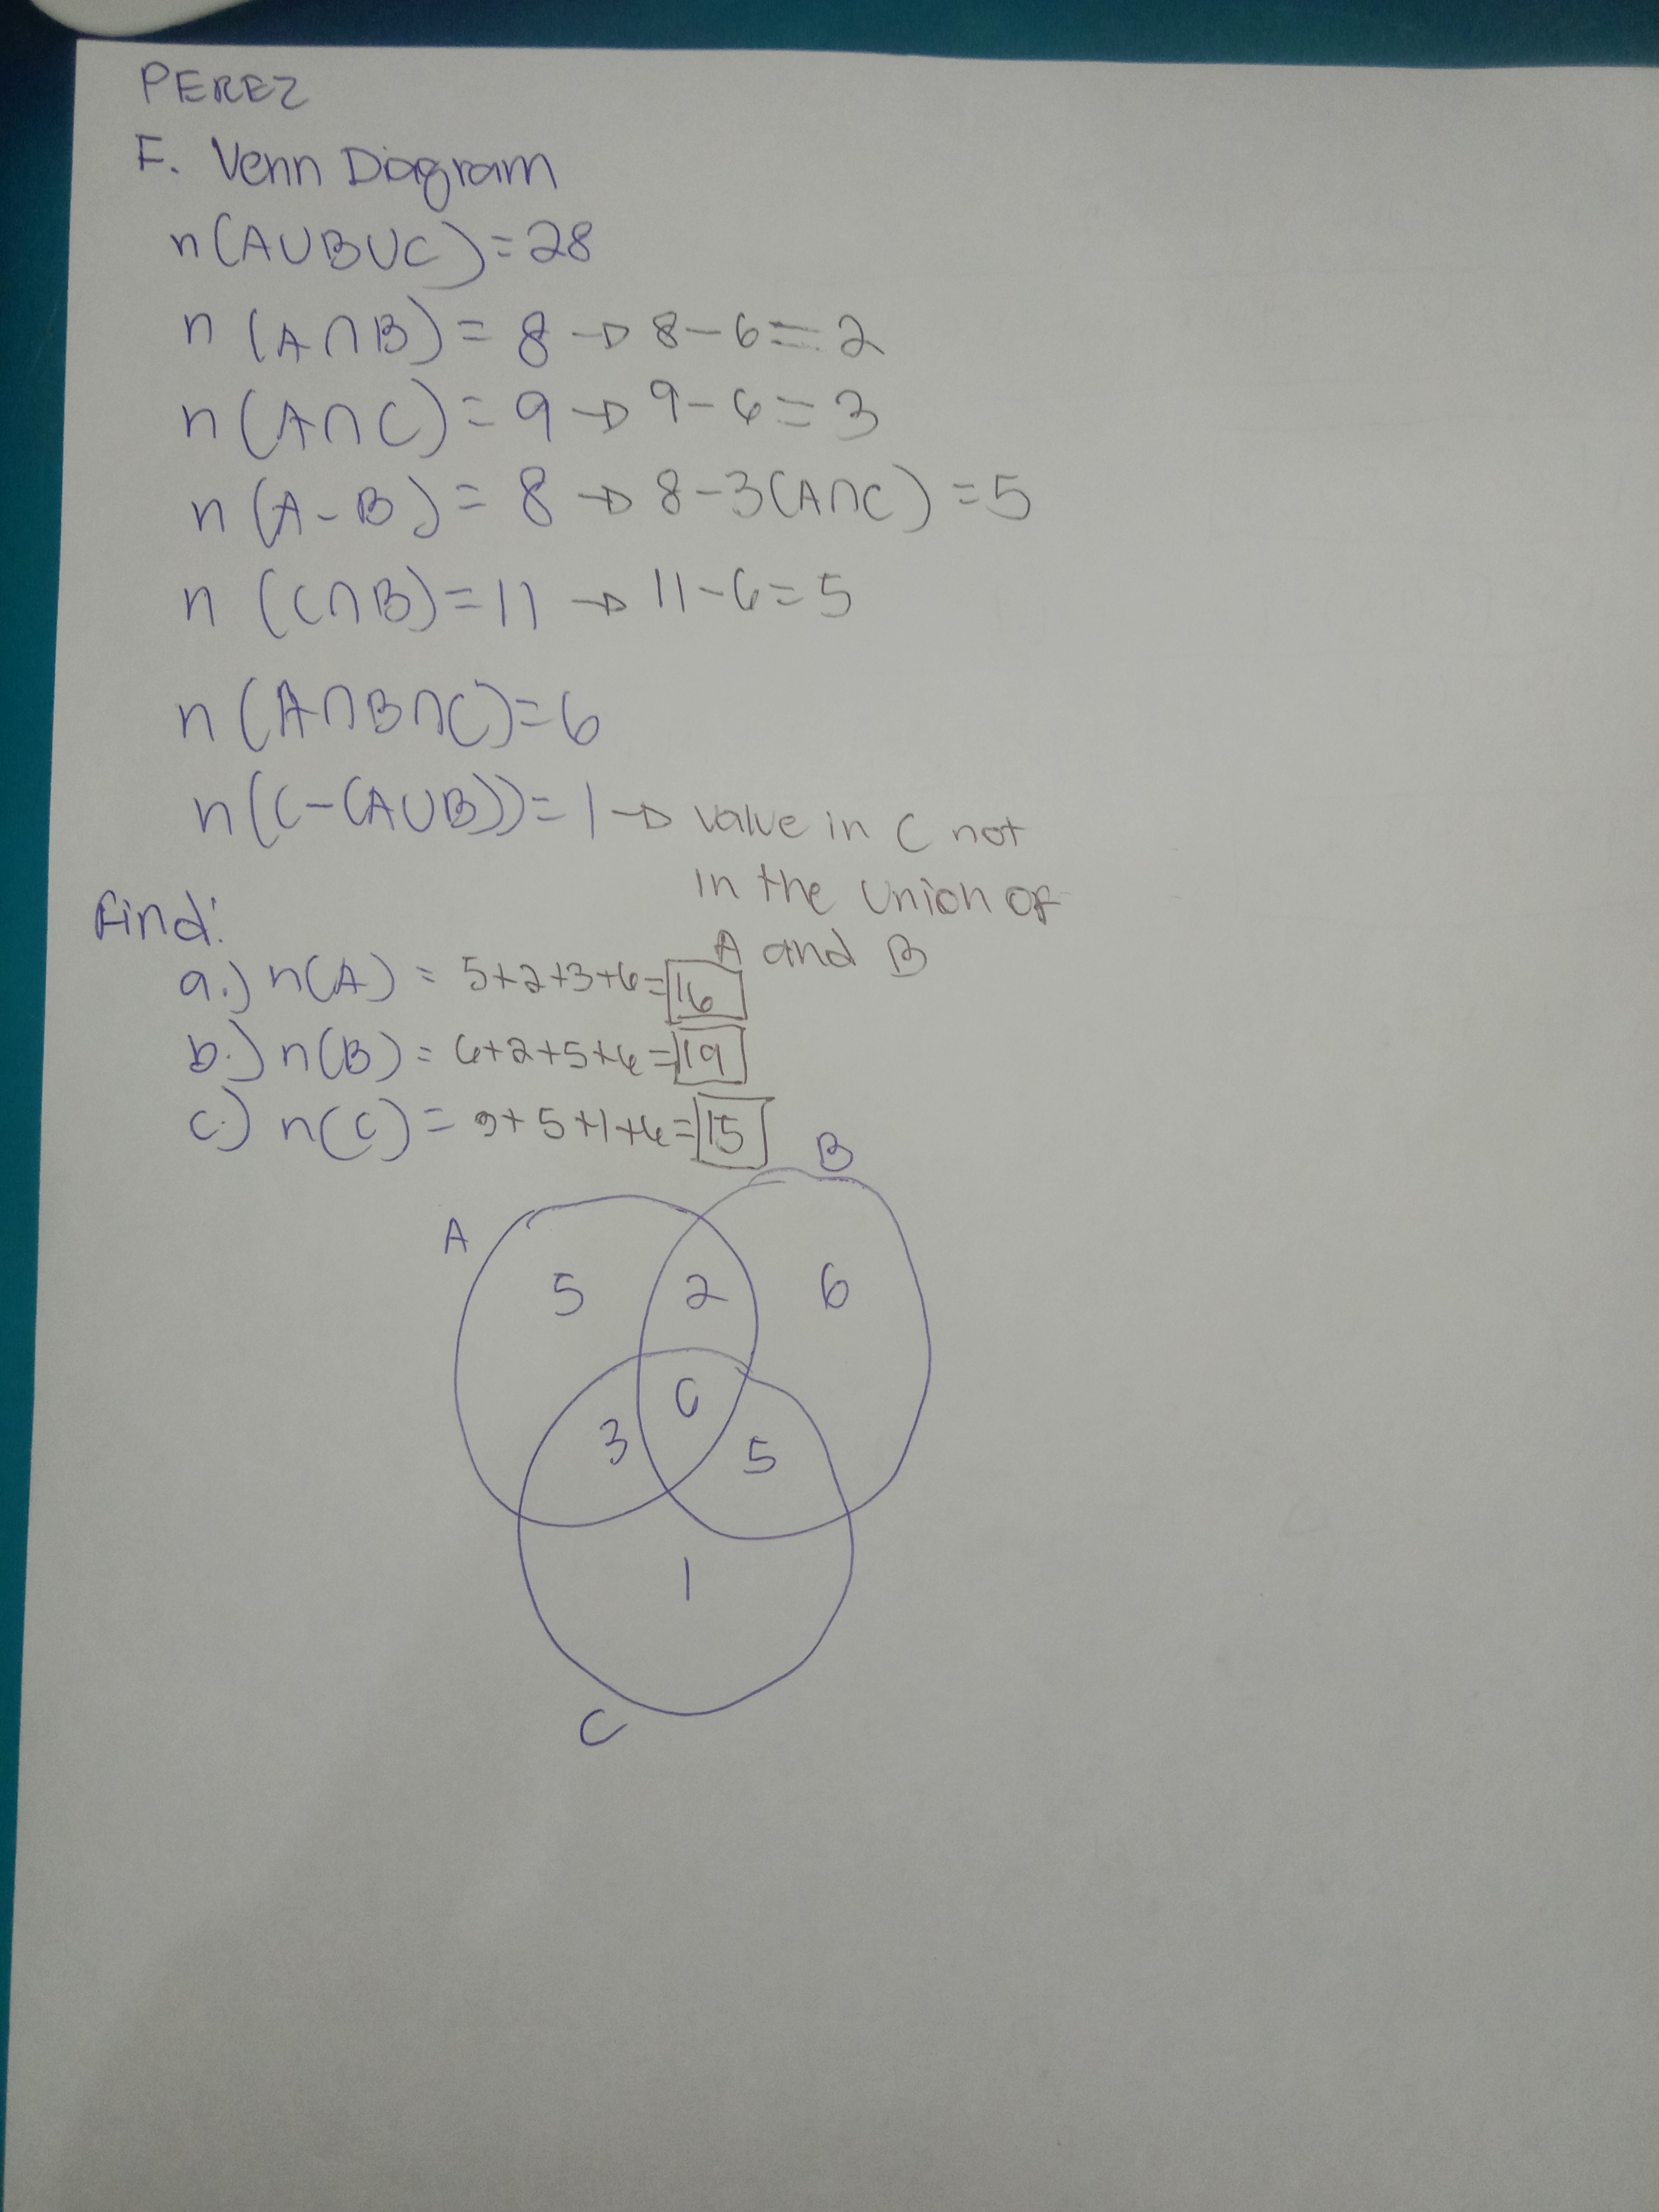 PEREZ
F. Venn Diagram
n(A∪B∪C)=28
n (A∩B) = 8 → 8-6=2
n (A∩C) = 9 → 9-6=3
n (A-B) = 8 → 8-3(A∩C) =5
n (C∩B)=11 → 11-6=5
n (A∩B∩C)=6
n(C-(A∪B))=1 → value in C not
in the union of
A and B
Find:
a.) n(A) = 5+2+3+6=16
b.) n(B) = 6+2+5+6=19
c.) n(C) = 3+5+1+6=15
B
A
5 2 6
6
3 5
1
C